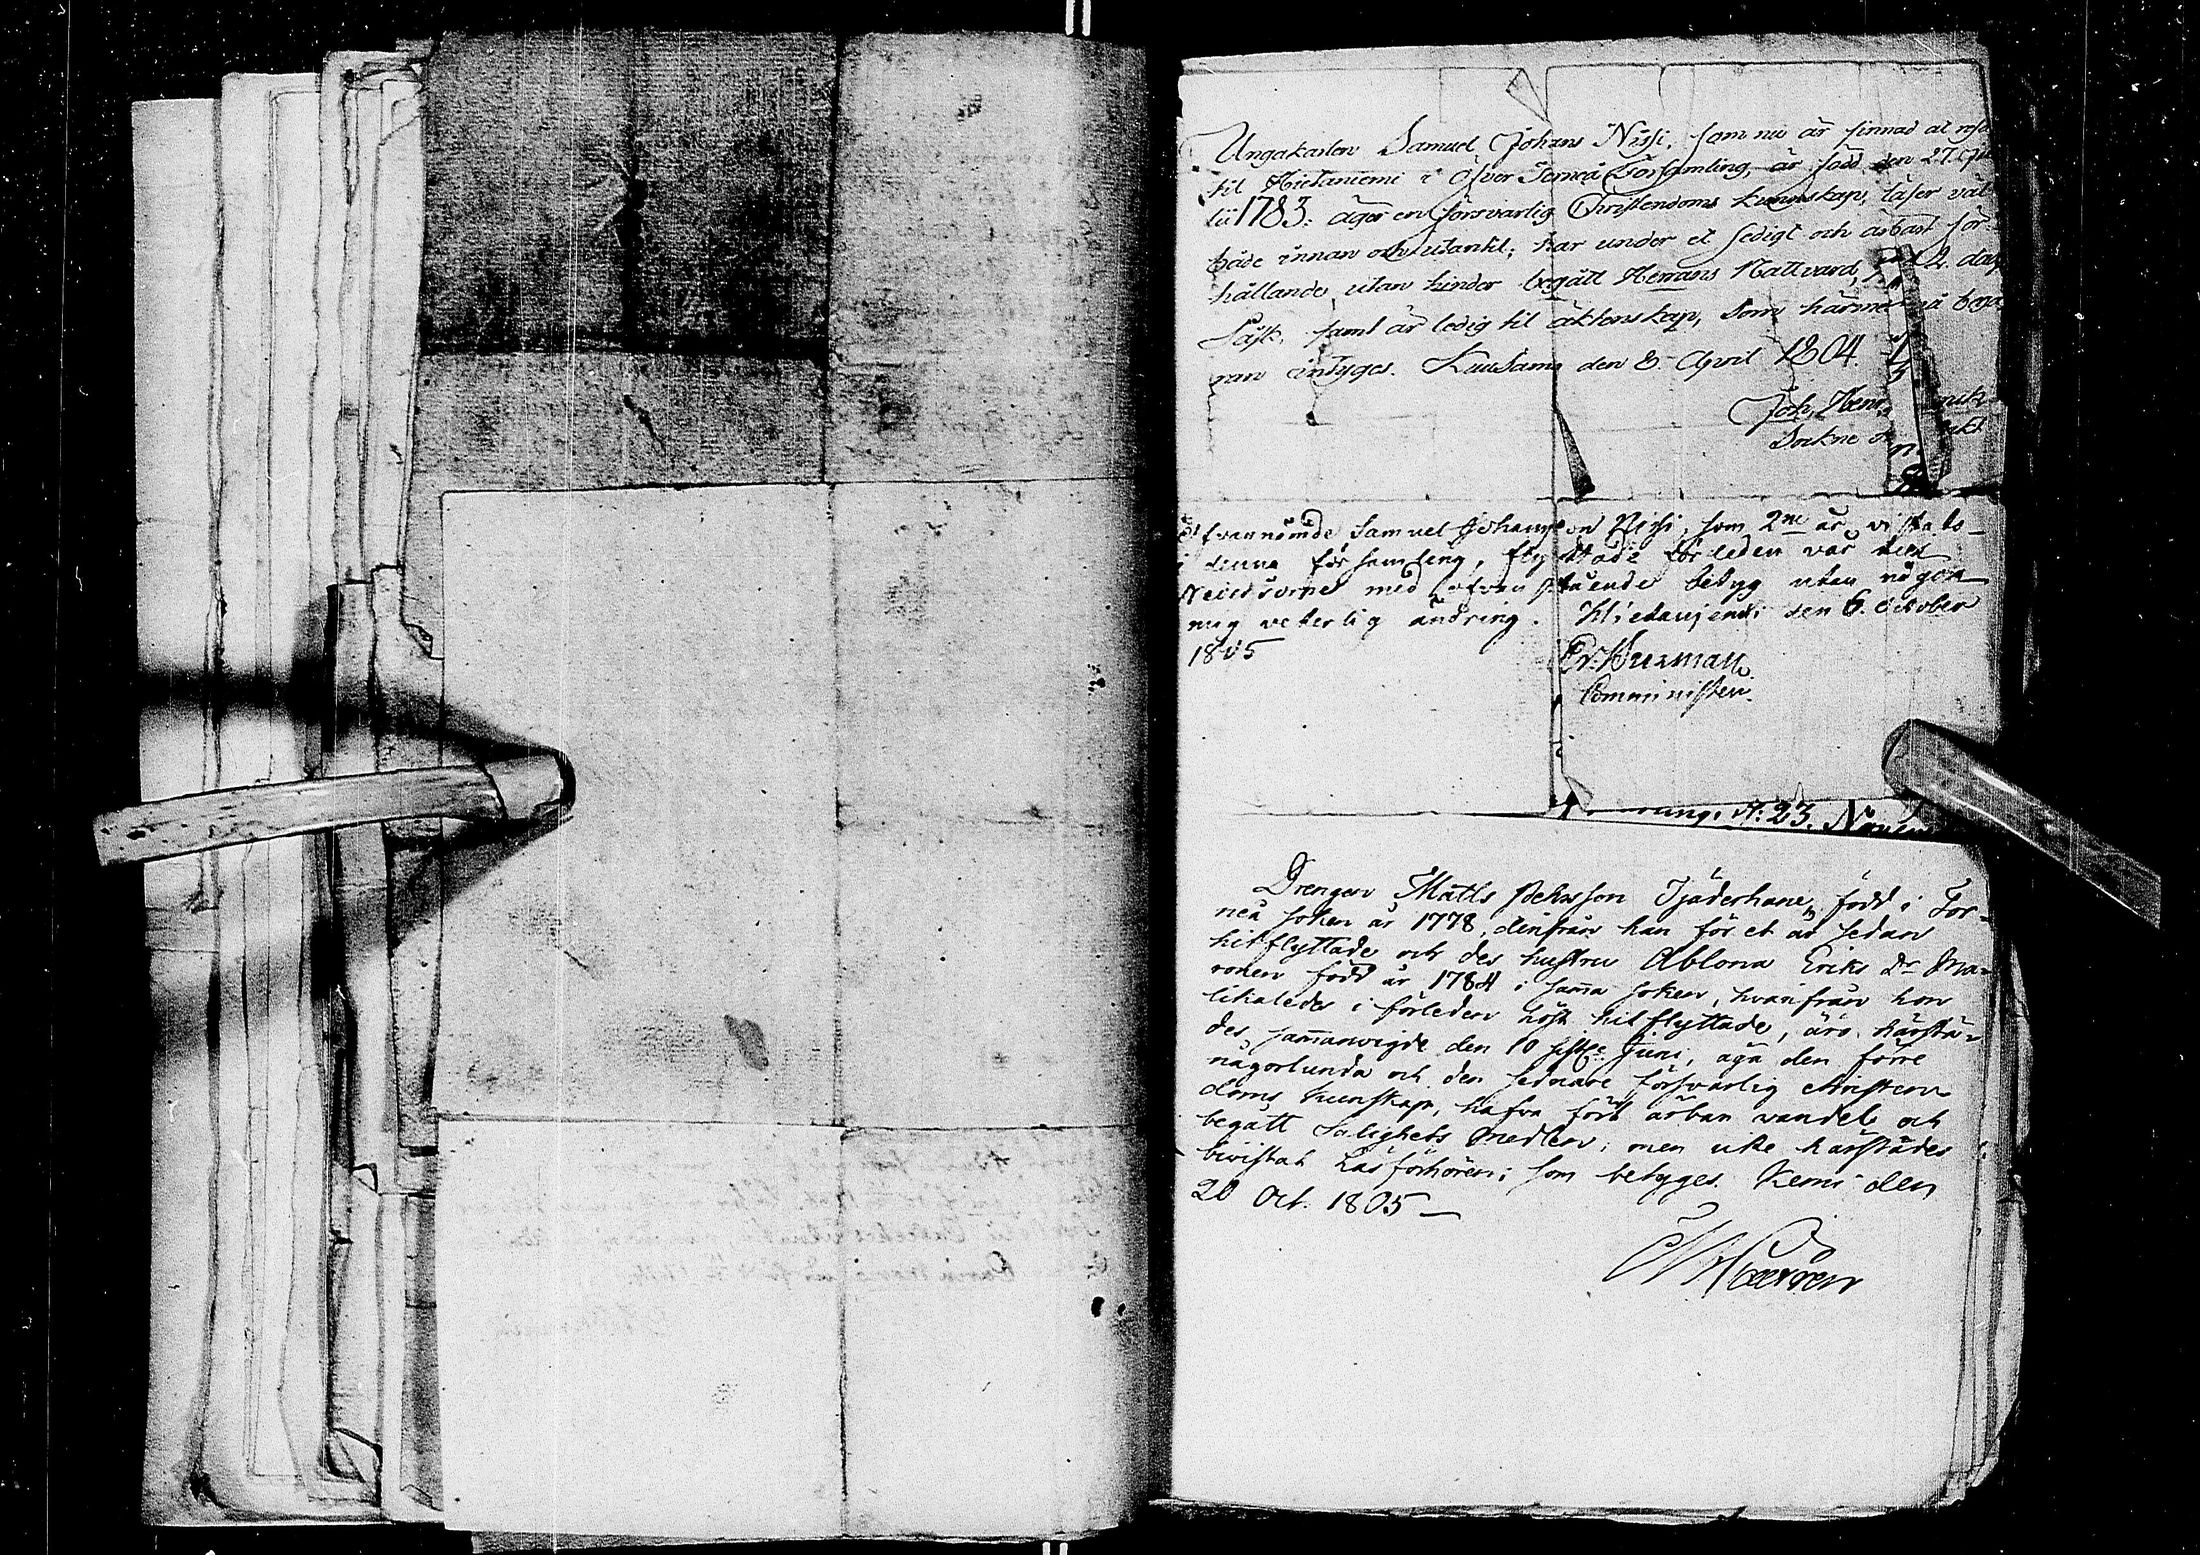 Ungakarlen Samuel Johans Nissi, som nu är sinnad at resa
til Hietaniemi i Öfver Torneå Församling, är född den 27.
1783. äger en försvarlig Christendoms kunnskap, läser väl
både innan och utantil; har under et sedigt och ärbart för-
hållande, utan hinder begått Herrans Nattvard, 2. dag
Påsk, samt är ledig til äktenskap, som härmed på begä-
ran intyges. Kuusamo den 8. April 1804.
Joh. Henr.
Sockne
Ofvannämde Samuel Johansson Nissi, som 2ne år vistats
i denna församling, flyttade förleden vår till
med ofvanstående betyg utan någon
mig veterlig ändring. Hietaniemi den 6. October
1805
Er. Burman
Comministen.
N: 23.
Drengen Matts Pehrsson Tjäderhane, född i Tor-
neå soken år 1778, dänifrån han för et år sedan
hitflyttade och des hustru Ablona Eriks Dr Ma-
ronen född år 1784 i samma soken, hvarifrån hon
likaledes i förleden höst hitflyttade, äro härstä-
des sammanvigde den 10 sistl. Juni, äga den förre
någorlunda och den sednare försvarlig christen-
doms kunskap, hafva fört ärbar vandel och
begått Salighets Medlen; men icke härstädes
bevistat Läsförhören; som betyges. Kemi den
20 Oct. 1805 —